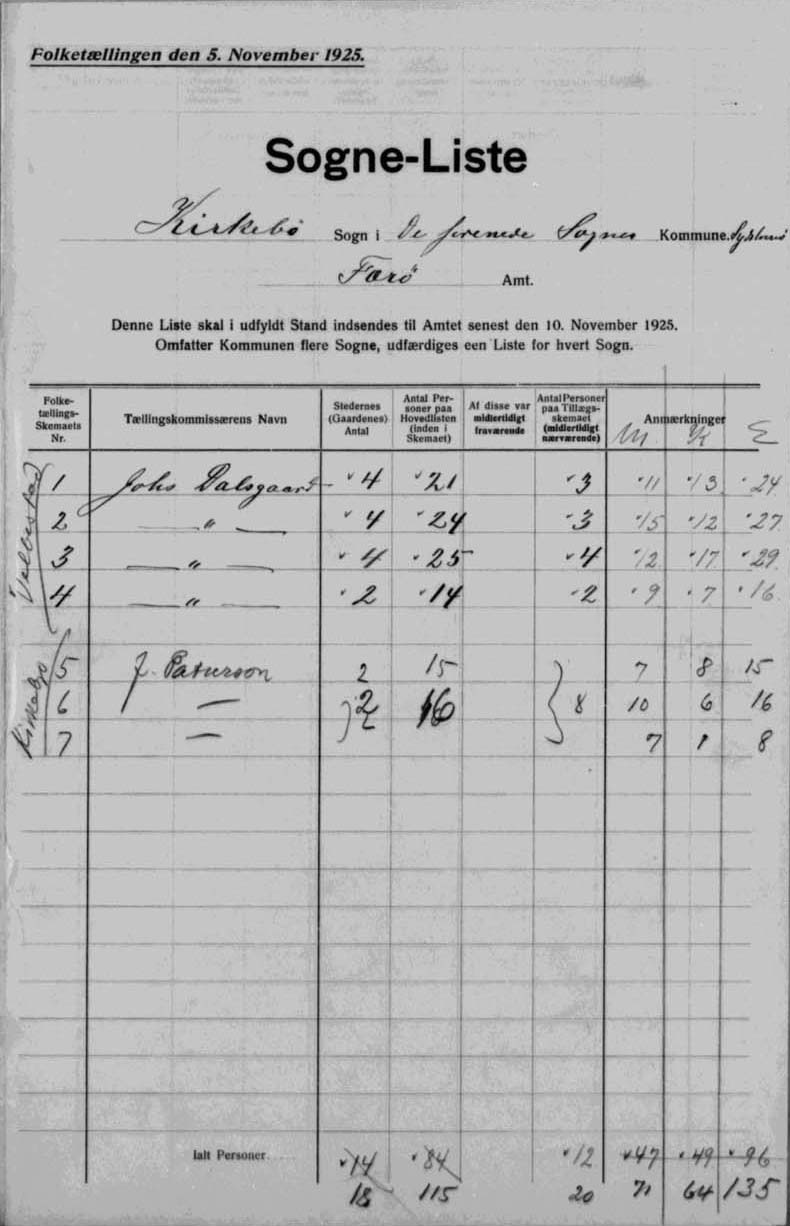 Folketællingen den 5. November 1925.
Sogne-Liste
Kirkebö Sogn i De forenede Sognes Kommune.
Færö Amt.
Denne Liste skal i udfyldt Stand indsendes til Amtet senest den 10. November 1925.
Omfatter Kommunen flere Sogne, udfærdiges een Liste for hvert Sogn.
Folketællings-Skemaets Nr. Tællingskommissærens Navn Stedernes (Gaardenes) Antal Antal Personer paa Hovedlisten (inden i Skemaet) Af disse var midlertidigt fraværende Antal Personer paa Tillægsskemaet (midlertidigt nærværende) Anmærkninger
M K Σ
Velbestad
1 Johs Dalsgaard 4 21 3 11 13 24
2 — " — 4 24 3 15 12 27
3 — " — 4 25 4 12 17 29
4 — " — 2 14 2 9 7 16
Kirkebø
5 J. Patursson 2 15 7 8 15
6 — 2 16 8 10 6 16
7 — 7 1 8
Ialt Personer 14 84 12 47 49 96
18 115 20 71 64 135